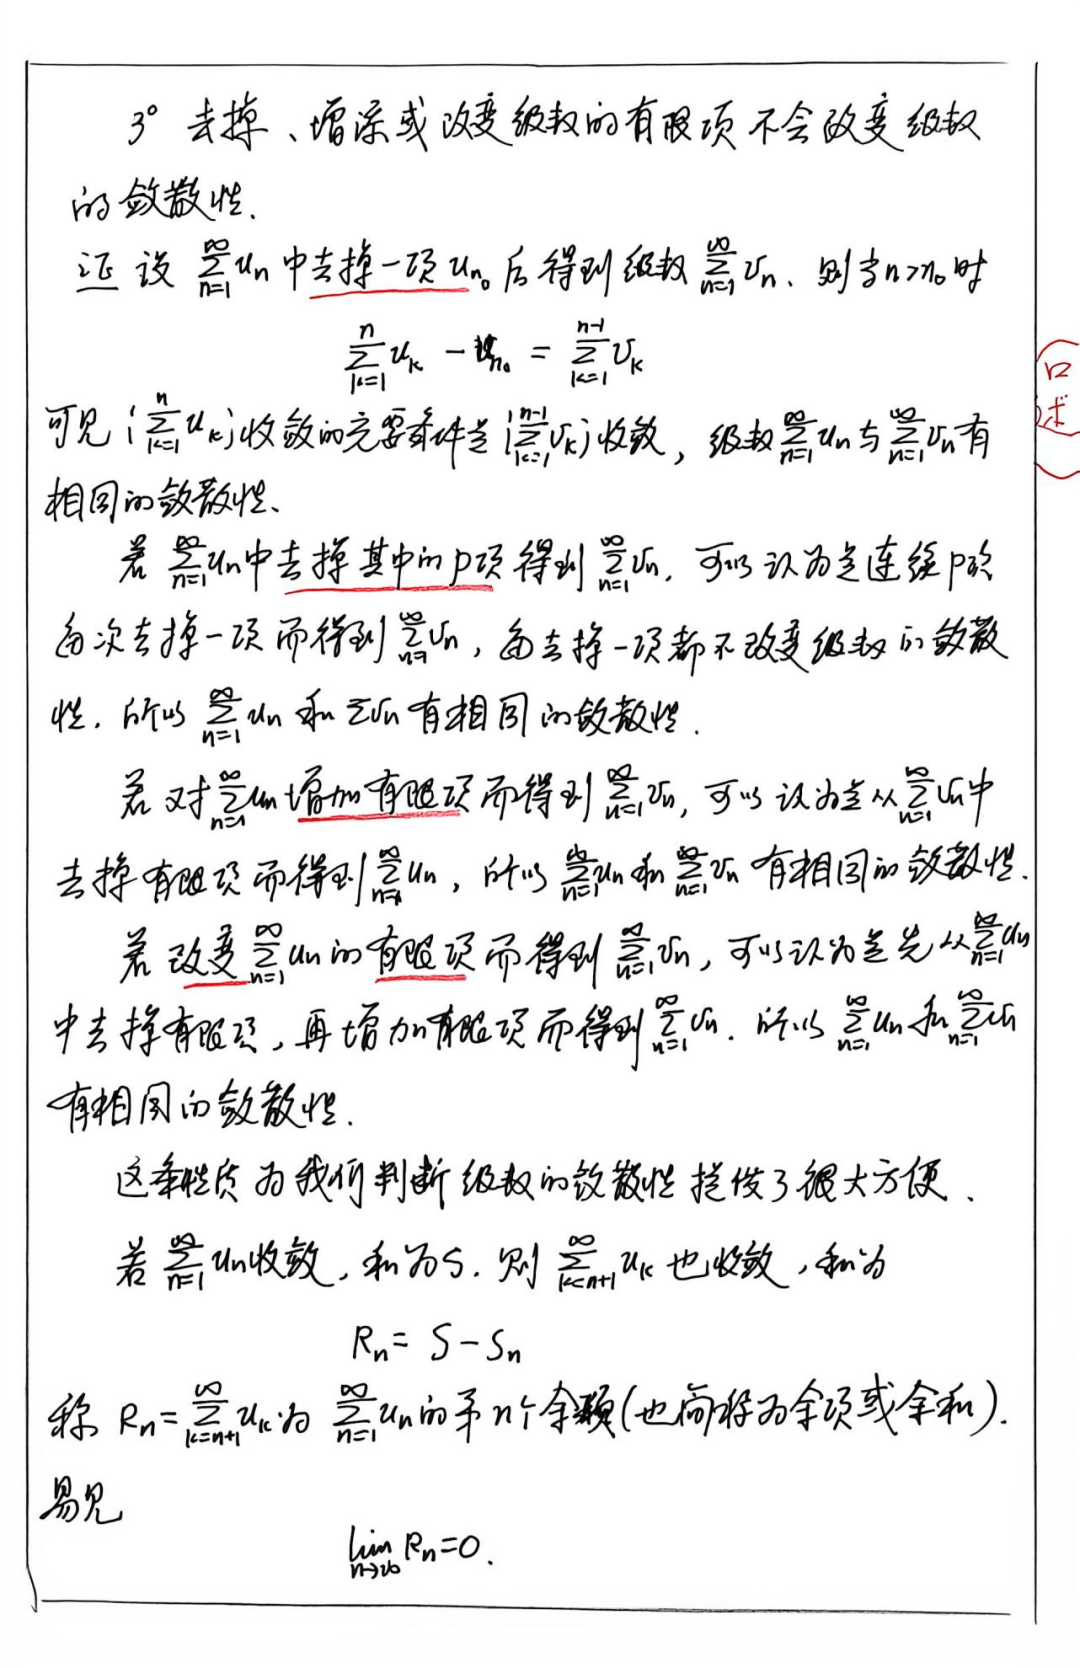 3° 去掉、增添或改变级数的有限项不会改变级数
的敛散性.
证 设 $\sum_{n=1}^{\infty} u_n$ 中去掉一项 $u_{n_0}$ 后得到级数 $\sum_{n=1}^{\infty} v_n$. 则当 $n>n_0$ 时
$\sum_{k=1}^{n} u_k - u_{n_0} = \sum_{k=1}^{n-1} v_k$
可见 $\{\sum_{k=1}^{n} u_k\}$ 收敛的充要条件是 $\{\sum_{k=1}^{n-1} v_k\}$ 收敛, 级数 $\sum_{n=1}^{\infty} u_n$ 与 $\sum_{n=1}^{\infty} v_n$ 有
相同的敛散性.
若 $\sum_{n=1}^{\infty} u_n$ 中去掉其中的p项得到 $\sum_{n=1}^{\infty} v_n$, 可以认为是连续p次
每次去掉一项而得到 $\sum_{n=1}^{\infty} v_n$, 每去掉一项都不改变级数的敛散
性. 所以 $\sum_{n=1}^{\infty} u_n$ 和 $\sum v_n$ 有相同的敛散性.
若对 $\sum_{n=1}^{\infty} u_n$ 增加有限项而得到 $\sum_{n=1}^{\infty} v_n$, 可以认为是从 $\sum_{n=1}^{\infty} v_n$ 中
去掉有限项而得到 $\sum_{n=1}^{\infty} u_n$, 所以 $\sum_{n=1}^{\infty} u_n$ 和 $\sum_{n=1}^{\infty} v_n$ 有相同的敛散性.
若改变 $\sum_{n=1}^{\infty} u_n$ 的有限项而得到 $\sum_{n=1}^{\infty} v_n$, 可以认为是先从 $\sum_{n=1}^{\infty} u_n$
中去掉有限项, 再增加有限项而得到 $\sum_{n=1}^{\infty} v_n$. 所以 $\sum_{n=1}^{\infty} u_n$ 和 $\sum_{n=1}^{\infty} v_n$
有相同的敛散性.
这条性质为我们判断级数的敛散性提供了很大方便.
若 $\sum_{n=1}^{\infty} u_n$ 收敛, 和为S. 则 $\sum_{k=n+1}^{\infty} u_k$ 也收敛, 和为
$R_n = S - S_n$
称 $R_n = \sum_{k=n+1}^{\infty} u_k$ 为 $\sum_{n=1}^{\infty} u_n$ 的第n个余额(也简称为余项或余和).
易见
$\lim_{n\to\infty} R_n = 0.$
(口述)